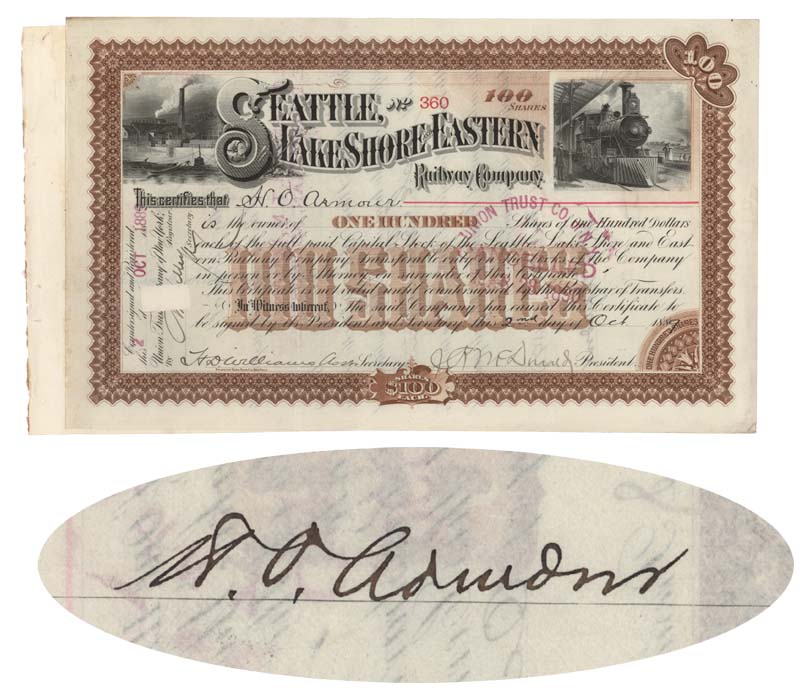 100
SEATTLE, No 360 100 SHARES
LAKE SHORE AND EASTERN
Railway Company.
This certifies that H. O. Armour
is the owner of ONE HUNDRED Shares of One Hundred Dollars
each of the full paid Capital Stock of the Seattle, Lake Shore and East-
ern Railway Company, transferable only on the books of the Company
in person or by Attorney on surrender of this Certificate.
This Certificate is not valid until countersigned by the Registrar of Transfers.
In Witness whereof, The said Company has caused this Certificate to
be signed by its President and Secretary this 2nd day of Oct
H D Williams Asst Secretary President.
SHARES
$100
EACH.
Countersigned and Registered
this 2 OCT
Union Trust Company of New York,
by
Registrar
Secretary
UNION TRUST CO.
ONE HUNDRED SHARES
H. O. Armour